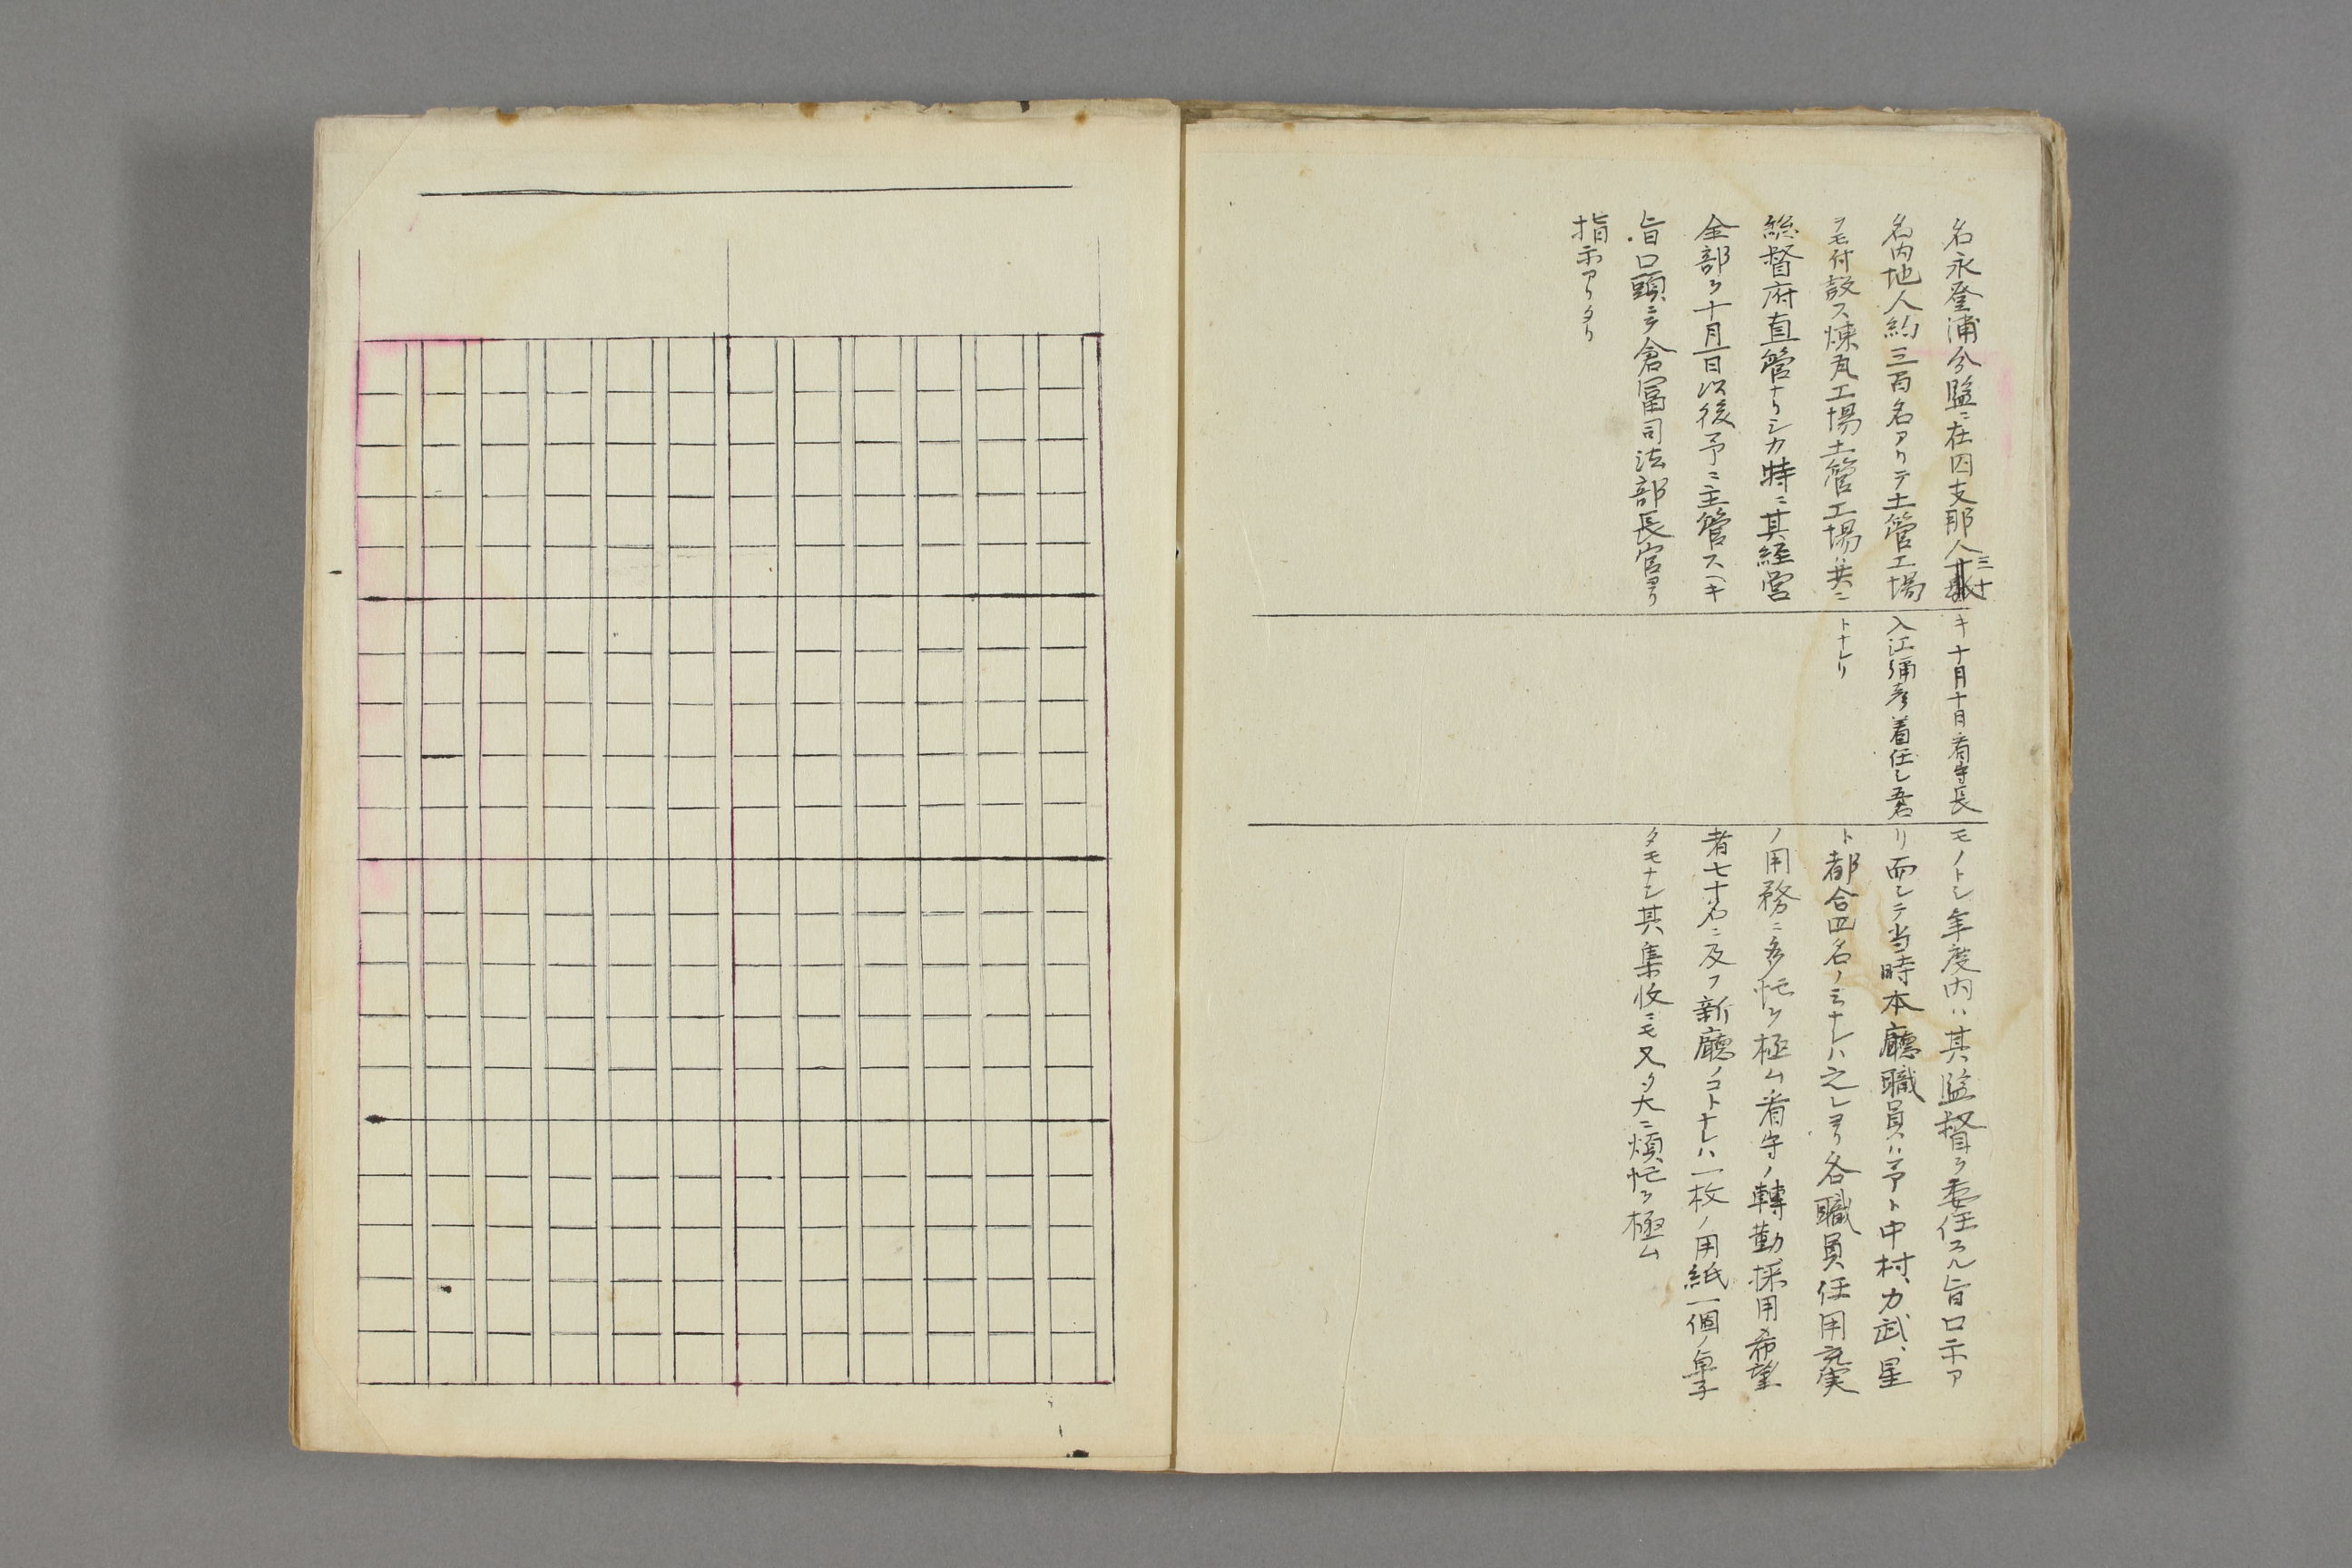 名永登浦分監ニ在囚支那人三十
名内地人約三百名アリテ土管工場
ヲモ付設ス煉瓦工場土管工場ハ共ニ
総督府直管ナリシカ特ニ其経営
全部ヲ十月一日以後予ニ主管スヘキ
旨口頭ニテ倉冨司法部長官ヨリ
指示アリタリ
キ十月十日看守長
入江彌彦着任シ五名
トナレリ
モノトシ年度内ハ其監督ヲ委任スル旨口示ア
リ而シテ当時本廳職員ハ予ト中村、力武、星
ト都合四名ノミナレハ之レヨリ各職員任用充実
ノ用務ニ多忙ヲ極ム看守ノ轉勤、採用希望
者七十名ニ及フ新廳ノコトナレハ一枚ノ用紙一個ノ卓子
タモナシ其集收ニモ又タ大ニ煩忙ヲ極ム